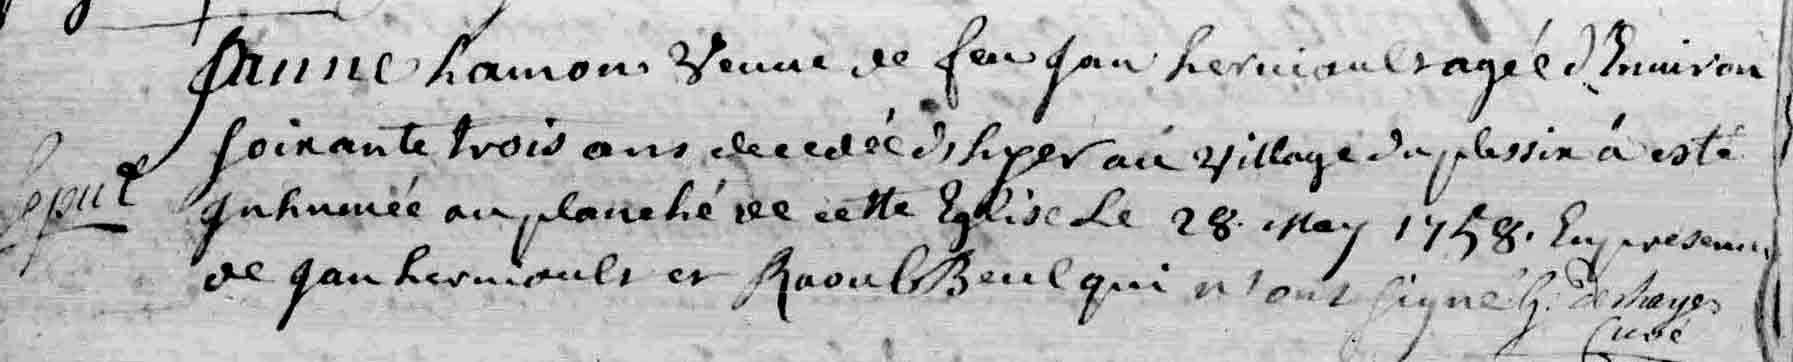 Janne hamon veuue de feu Jan hermoult agée d'Enuiron
soixante trois ans decedée d'hyer au village du plessix a esté
Sepult
Inhumée au planché de cette Eglise Le 28. May 1758. En presence
de Jan hermoult et Raoul Beul qui n'ont signé G. Deshayes
Curé